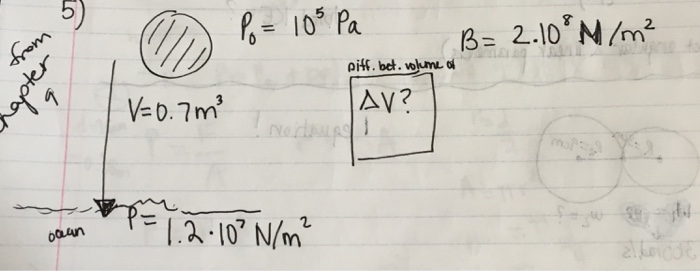 5)
from chapter 9
P₀ = 10⁵ Pa
B = 2.10⁸ N/m²
Diff. bet. volume of
ΔV?
V=0.7m³
ocean
P= 1.2·10⁷ N/m²